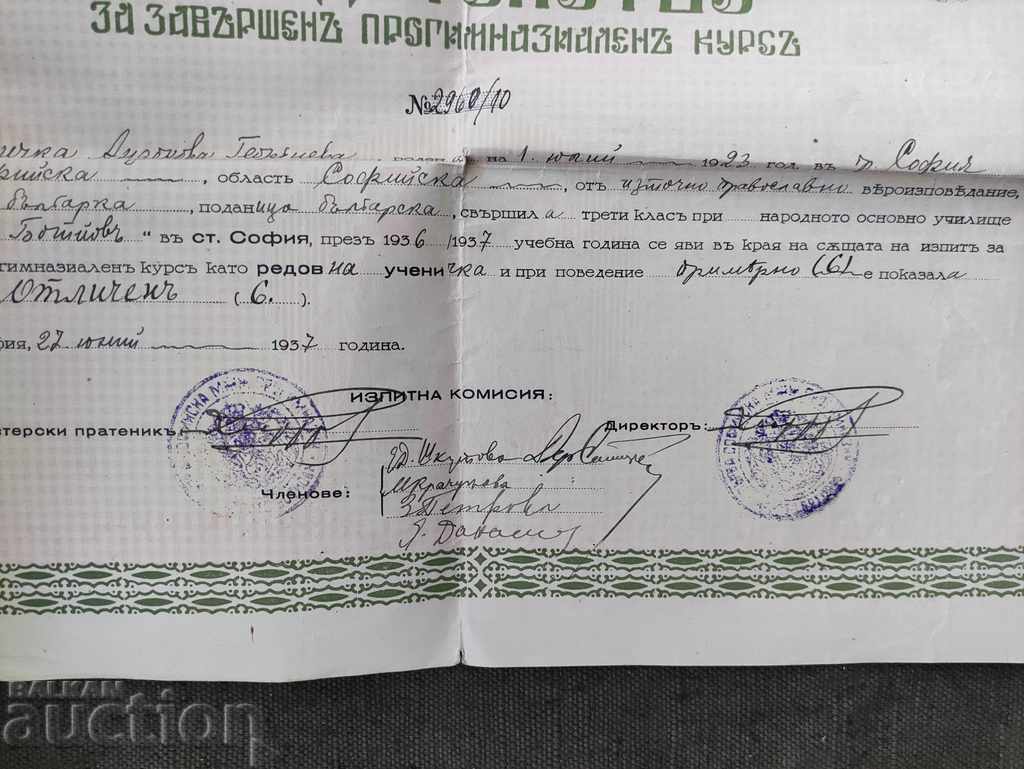 ЗА ЗАВЪРШЕНЪ ПРОГИМНАЗИАЛЕНЪ КУРСЪ
№ 2960/10
ичка Георгиева на 1. юний 1923 год. въ гр. София
фийска, область Софийска, отъ източно православно вѣроизповѣдание,
българка, поданица българска, свършила трети класъ при народното основно училище
Ботйовъ" въ ст. София, презъ 1936/1937 учебна година се яви въ края на сѫщата на изпитъ за
гимназиаленъ курсъ като редовна ученичка и при поведение примѣрно (6) е показала
Отличенъ (6.).
фия, 27 юний 1937 година.
ИЗПИТНА КОМИСИЯ:
стерски пратеникъ
Директоръ:
Членове:
З. Петрова
BALKAN
auction